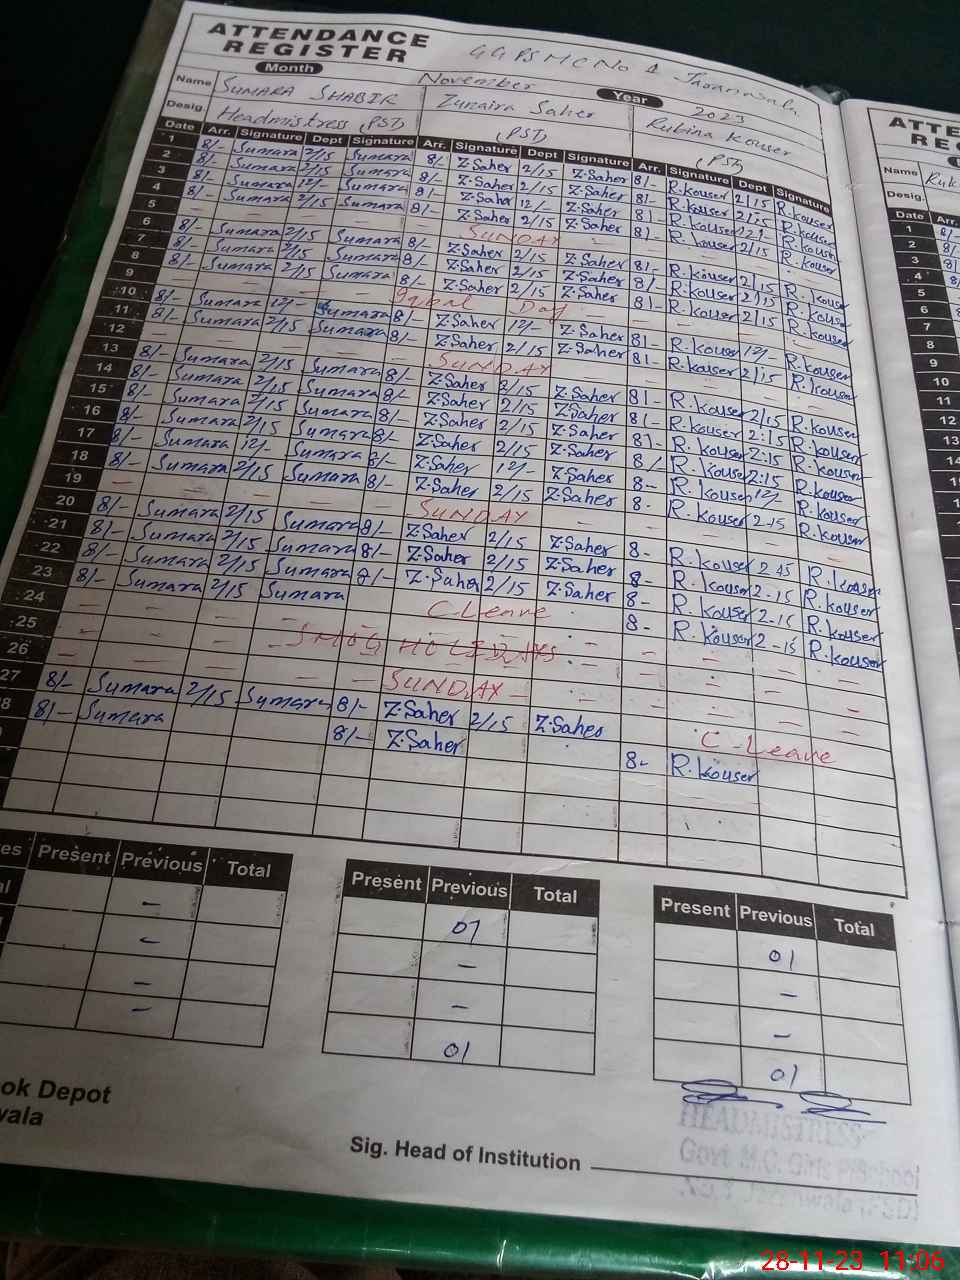 ATTENDANCE REGISTER GGPS MC No 1 Jaranwala
Month November Year 2023
Name SUMARA SHABIR Zunaira Saher Rubina Kouser
Desig. Headmistress (PST) (PST) (PST)
Date Arr. Signature Dept Signature Arr. Signature Dept Signature Arr. Signature Dept Signature
1 8/- Sumara 2/15 Sumara 8/- Z.Saher 2/15 Z.Saher 8/- R.Kouser 2/15 R.Kouser
2 8/- Sumara 2/15 Sumara 8/- Z.Saher 2/15 Z.Saher 8/- R.Kouser 2/15 R.Kouser
3 8/- Sumara 12/- Sumara 8/- Z.Saher 12/- Z.Saher 8/- R.Kouser 12/- R.Kouser
4 8/- Sumara 2/15 Sumara 8/- Z.Saher 2/15 Z.Saher 8/- R.Kouser 2/15 R.Kouser
5 SUNDAY
6 8/- Sumara 2/15 Sumara 8/- Z.Saher 2/15 Z.Saher 8/- R.Kouser 2/15 R.Kouser
7 8/- Sumara 2/15 Sumara 8/- Z.Saher 2/15 Z.Saher 8/- R.Kouser 2/15 R.Kouser
8 8/- Sumara 2/15 Sumara 8/- Z.Saher 2/15 Z.Saher 8/- R.Kouser 2/15 R.Kouser
9 Iqbal Day
10 8/- Sumara 12/- Sumara 8/- Z.Saher 12/- Z.Saher 8/- R.Kouser 12/- R.Kouser
11 8/- Sumara 2/15 Sumara 8/- Z.Saher 2/15 Z.Saher 8/- R.Kouser 2/15 R.Kouser
12 SUNDAY
13 8/- Sumara 2/15 Sumara 8/- Z.Saher 2/15 Z.Saher 8/- R.Kouser 2/15 R.Kouser
14 8/- Sumara 2/15 Sumara 8/- Z.Saher 2/15 Z.Saher 8/- R.Kouser 2:15 R.Kouser
15 8/- Sumara 2/15 Sumara 8/- Z.Saher 2/15 Z.Saher 8/- R.Kouser 2:15 R.Kouser
16 8/- Sumara 2/15 Sumara 8/- Z.Saher 2/15 Z.Saher 8/- R.Kouser 2:15 R.Kouser
17 8/- Sumara 12/- Sumara 8/- Z.Saher 12/- Z.Saher 8- R.Kouser 12/- R.Kouser
18 8/- Sumara 2/15 Sumara 8/- Z.Saher 2/15 Z.Saher 8- R.Kouser 2-15 R.Kouser
19 SUNDAY
20 8/- Sumara 2/15 Sumara 8/- Z.Saher 2/15 Z.Saher 8- R.Kouser 2-15 R.Kouser
21 8/- Sumara 2/15 Sumara 8/- Z.Saher 2/15 Z.Saher 8- R.Kouser 2-15 R.Kouser
22 8/- Sumara 2/15 Sumara 8/- Z.Saher 2/15 Z.Saher 8- R.Kouser 2-15 R.Kouser
23 8/- Sumara 2/15 Sumara C Leave 8- R.Kouser 2-15 R.Kouser
24
25 SMOG HOLIDAYS
26 SUNDAY
27 8/- Sumara 2/15 Sumara 8/- Z.Saher 2/15 Z.Saher C-Leave
8 8/- Sumara 8/- Z.Saher 8- R.Kouser
es Present Previous Total Present Previous Total Present Previous Total
al - 01 01
- - -
- - -
- 01 01
ok Depot
wala
Sig. Head of Institution
HEADMISTRESS
Govt M.C. Girls P/School
No.1 Jaranwala (FSD)
ATTE
REG
Name Ruk
Desig.
Date Arr.
1 8/-
2 8/-
3 8/
4 8
5
6 8
7
8
9
10
11
12
13
14
28-11-23 11:06